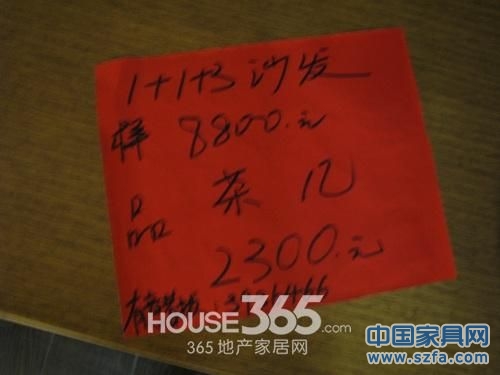 1+1+3沙发
样 8800.元
品 茶几
2300.元
HOUSE365.com
365地产家居网
中国家具网
www.szfa.com